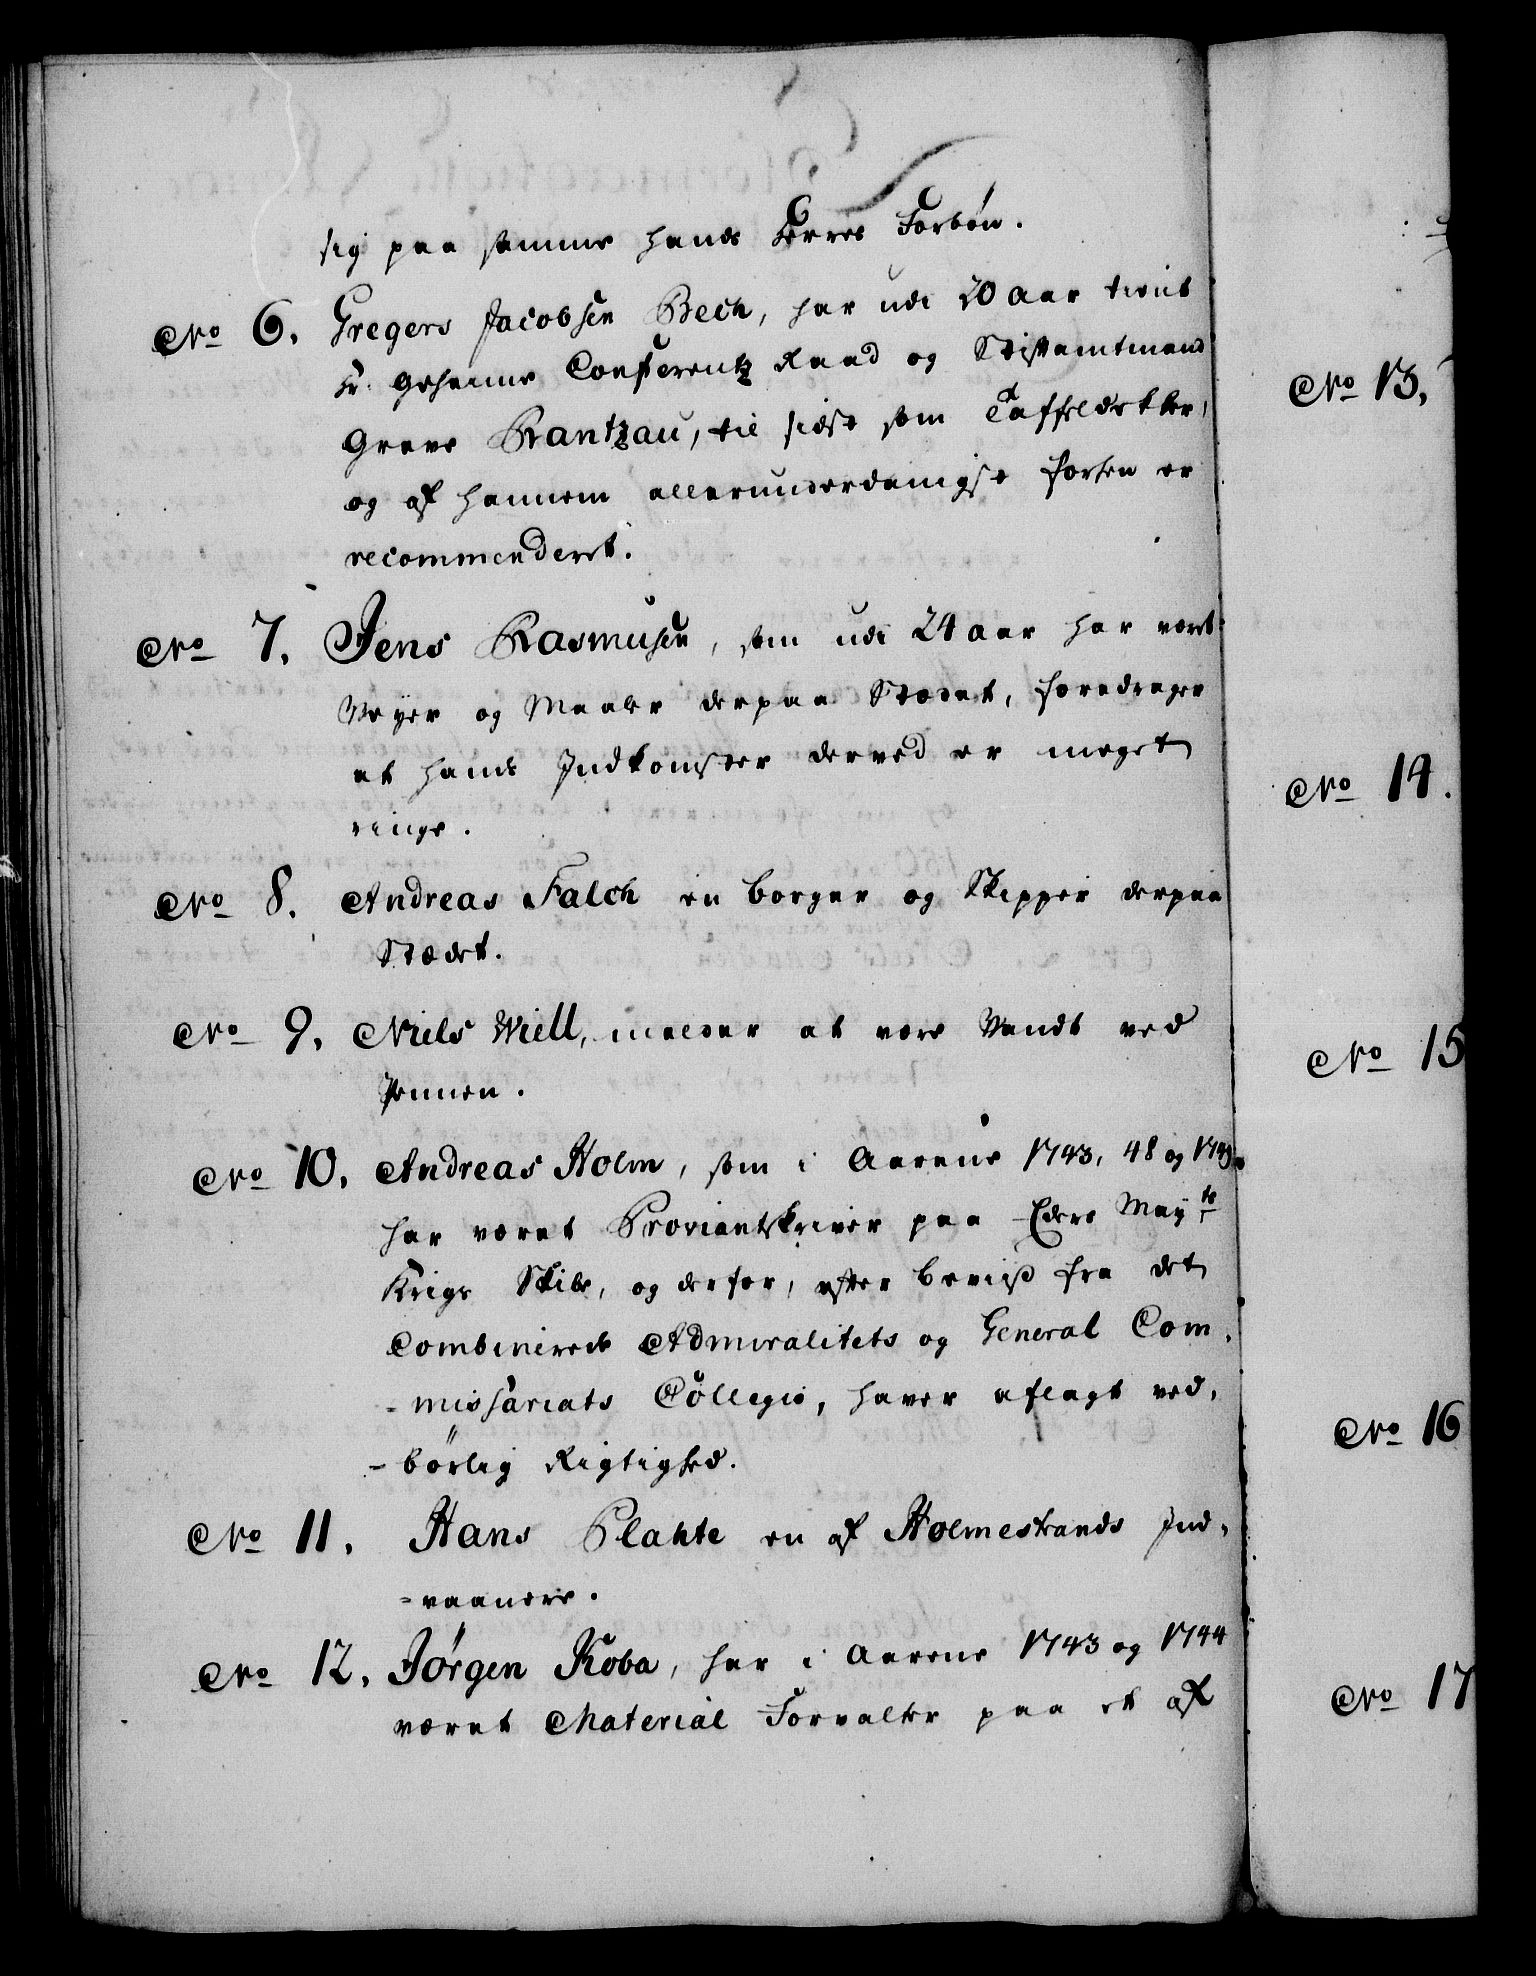 sig paa samme hands Herres Forbøn.
No 6. Gregers Jacobsen Bech, har udi 20 aar tient
Hr. Geheime Conferentz Raad og Stiftamtmand
Greve Rantzau, til sidst som Taffeldekker,
og af hannem allerunderdanigst forhen er
recommenderet.
No 7. Jens Rasmusen, som udi 24 aar har været
Veyer og Maaler derpaa Stædet, foredrager
at hands Indkomster derved er meget
ringe.
No 8. Andreas Falch en borger og Skipper derpaa
Stædet.
No 9. Niels Wiell, melder at være Vandt ved
Pennen.
No 10. Andreas Holm, som i Aarene 1743, 48 og 1749
har været Proviantskriver paa Eders May.ts
Krigs Skibe, og derfor, efter beviis fra det
Combinerede Admiralitets og General Com-
-missariats Collegio, haver aflagt ved-
-børlig Rigtighed.
No 11. Hans Plahte en af Holmestrands Ind-
-vaanere.
No 12. Jørgen Koba, har i Aarene 1743 og 1744
været Material Forvalter paa et af
No 13.
No 14.
No 15
No 16
No 17